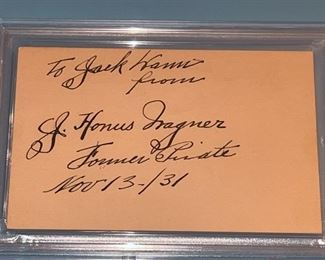 To Jack
from
J. Honus Wagner
Former Pirate
Nov 13-/31